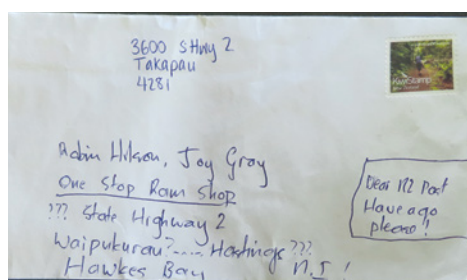 3600 SHwy 2
Takapau
4281
KiwiStamp
Robin Hilson, Joy Gray
One Stop Ram Shop
??? State Highway 2
Waipukurau?.... Hastings ???
Hawkes Bay N.I!
Dear NZ Post
Have a go
please!